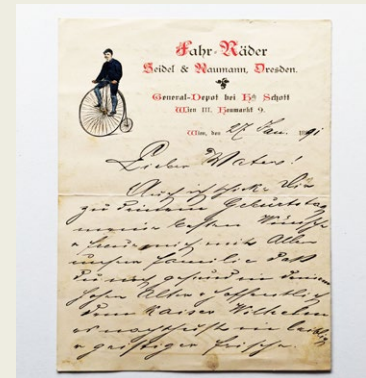 Fahr-Räder
Seidel & Naumann, Dresden.
General-Depot bei Schott
Wien III. Heumarkt 9.
Wien, den 27. Jan. 1891
Lieber Vater!
Auch ich schicke Dir
zu deinem Geburtstag
meine besten Wünsche
& freue mich mit Allen
unsrer Familie daß
du noch gesund in deinem
hohen Alter &
dem Kaiser Wilhelm
& geistiger Frische.